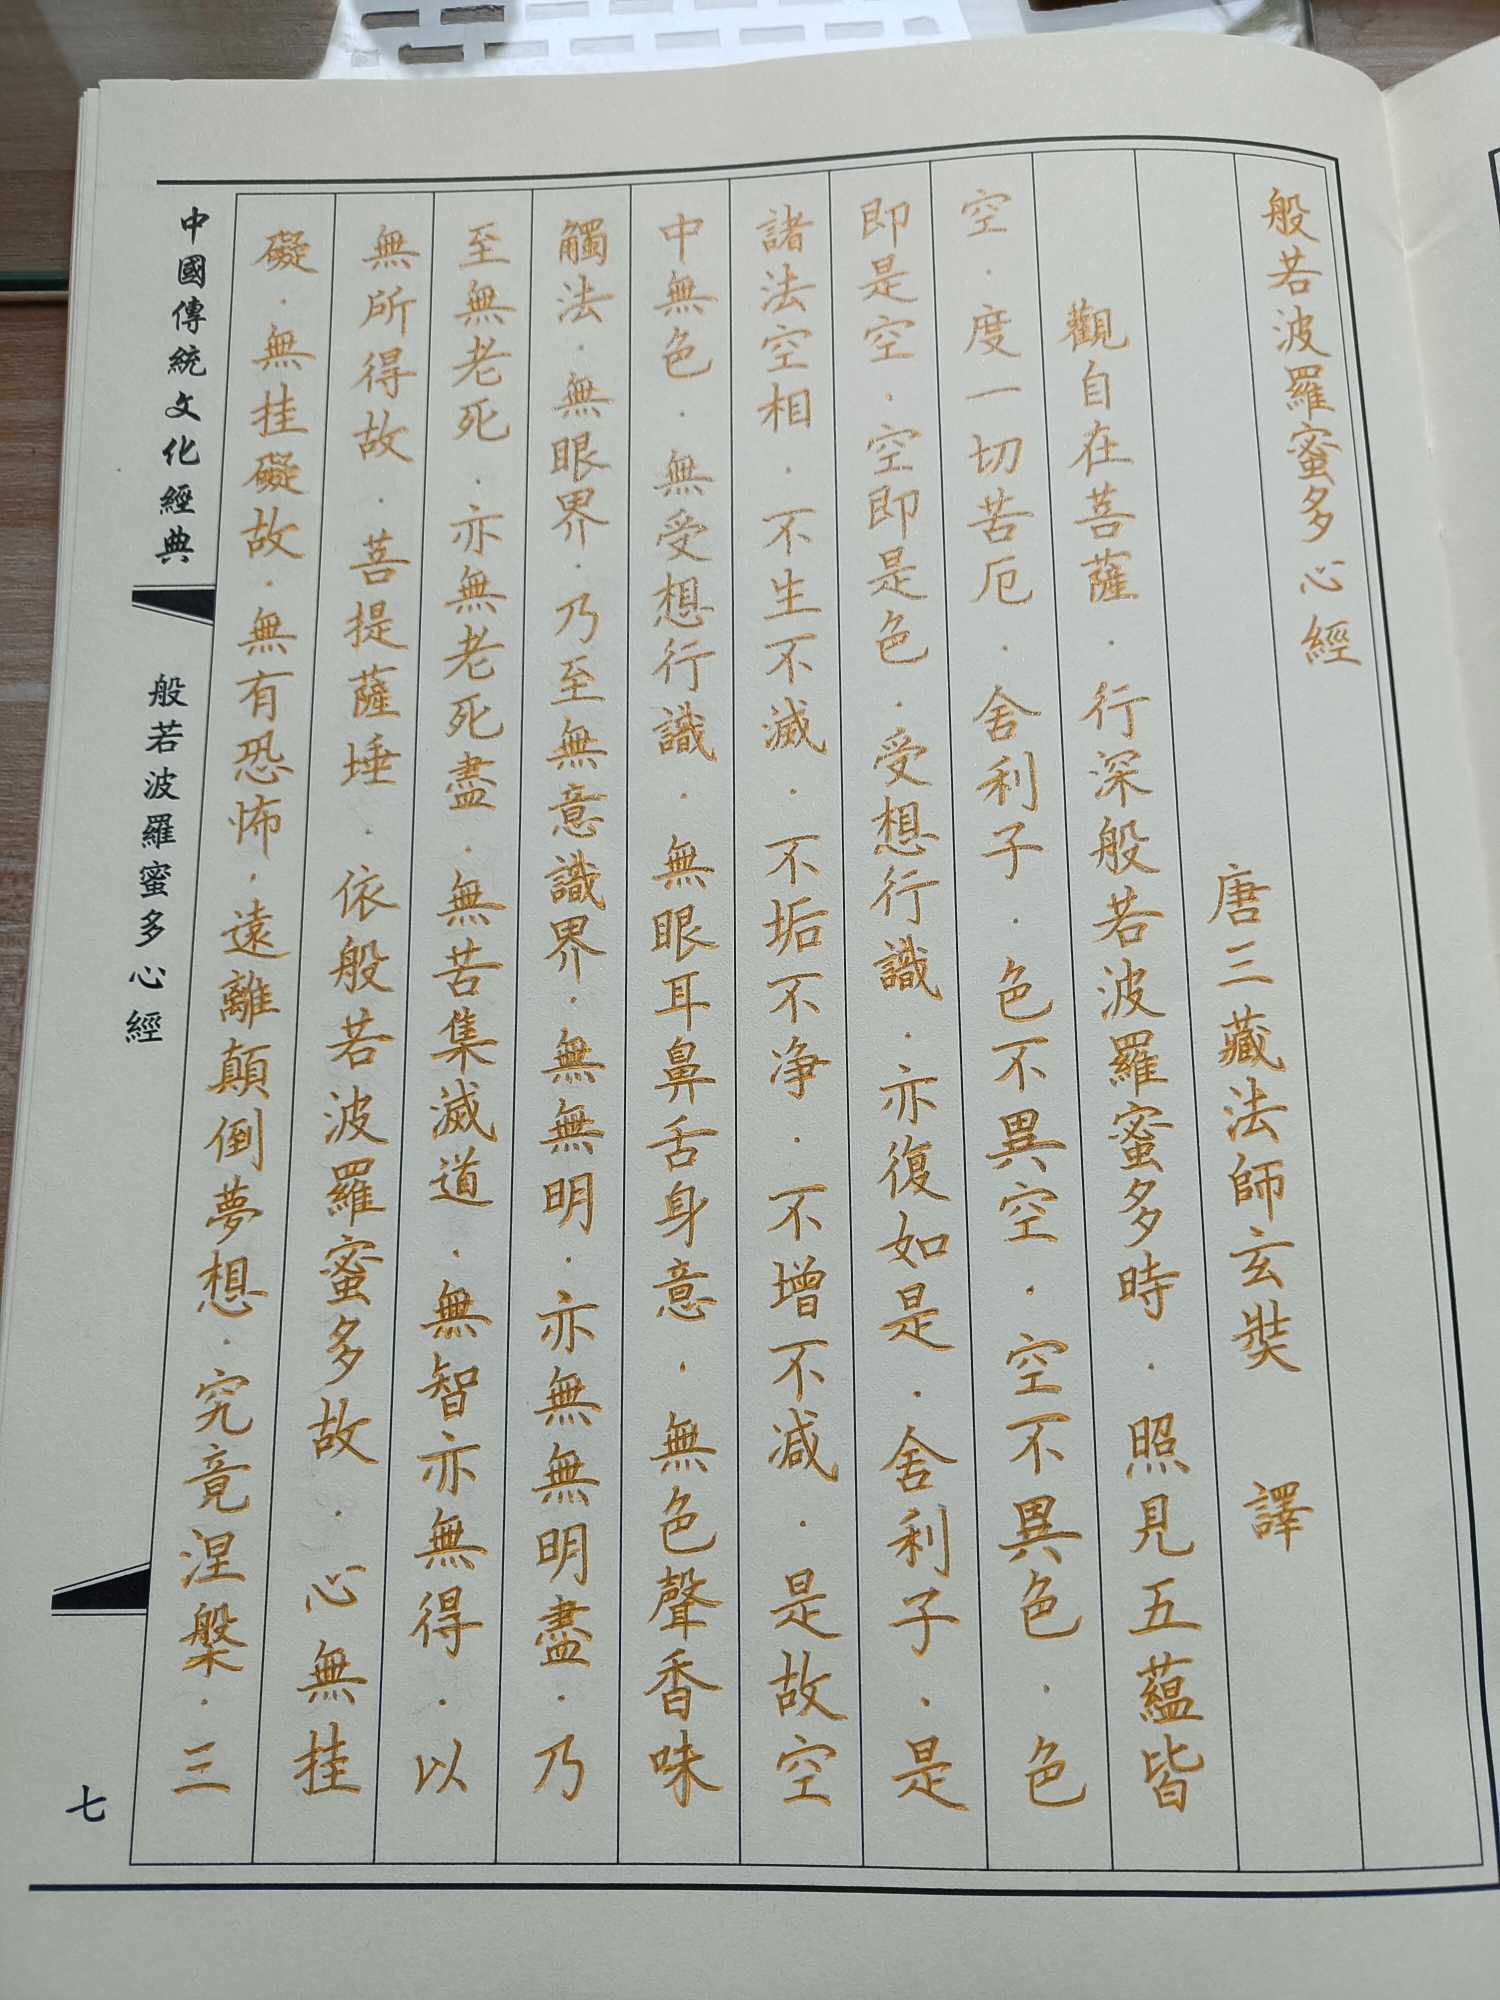 般若波羅蜜多心經
唐三藏法師玄奘 譯
觀自在菩薩·行深般若波羅蜜多時·照見五蘊皆
空·度一切苦厄·舍利子·色不異空·空不異色·色
即是空·空即是色·受想行識·亦復如是·舍利子·是
諸法空相·不生不滅·不垢不净·不增不减·是故空
中無色·無受想行識·無眼耳鼻舌身意·無色聲香味
觸法·無眼界·乃至無意識界·無無明·亦無無明盡·乃
至無老死·亦無老死盡·無苦集滅道·無智亦無得·以
無所得故·菩提薩埵·依般若波羅蜜多故·心無挂
礙·無挂礙故·無有恐怖·遠離顛倒夢想·究竟涅槃·三
中國傳統文化經典
般若波羅蜜多心經
七